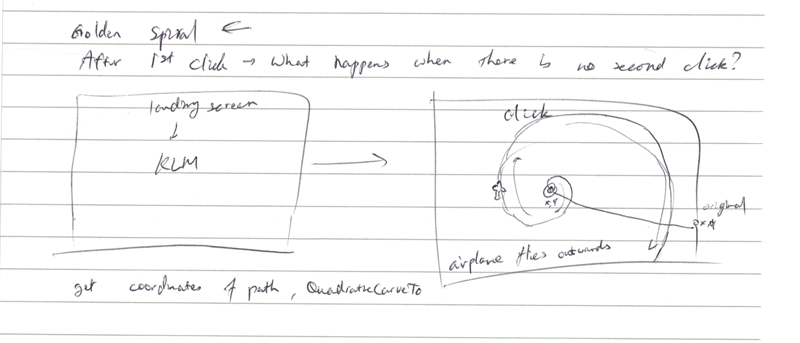 Golden Spiral ←
After 1st click → What happens when there is no second click?
landing screen
↓
KLM
→
click
x,y
original
airplane flies outwards
get coordinates of path, QuadraticCurveTo